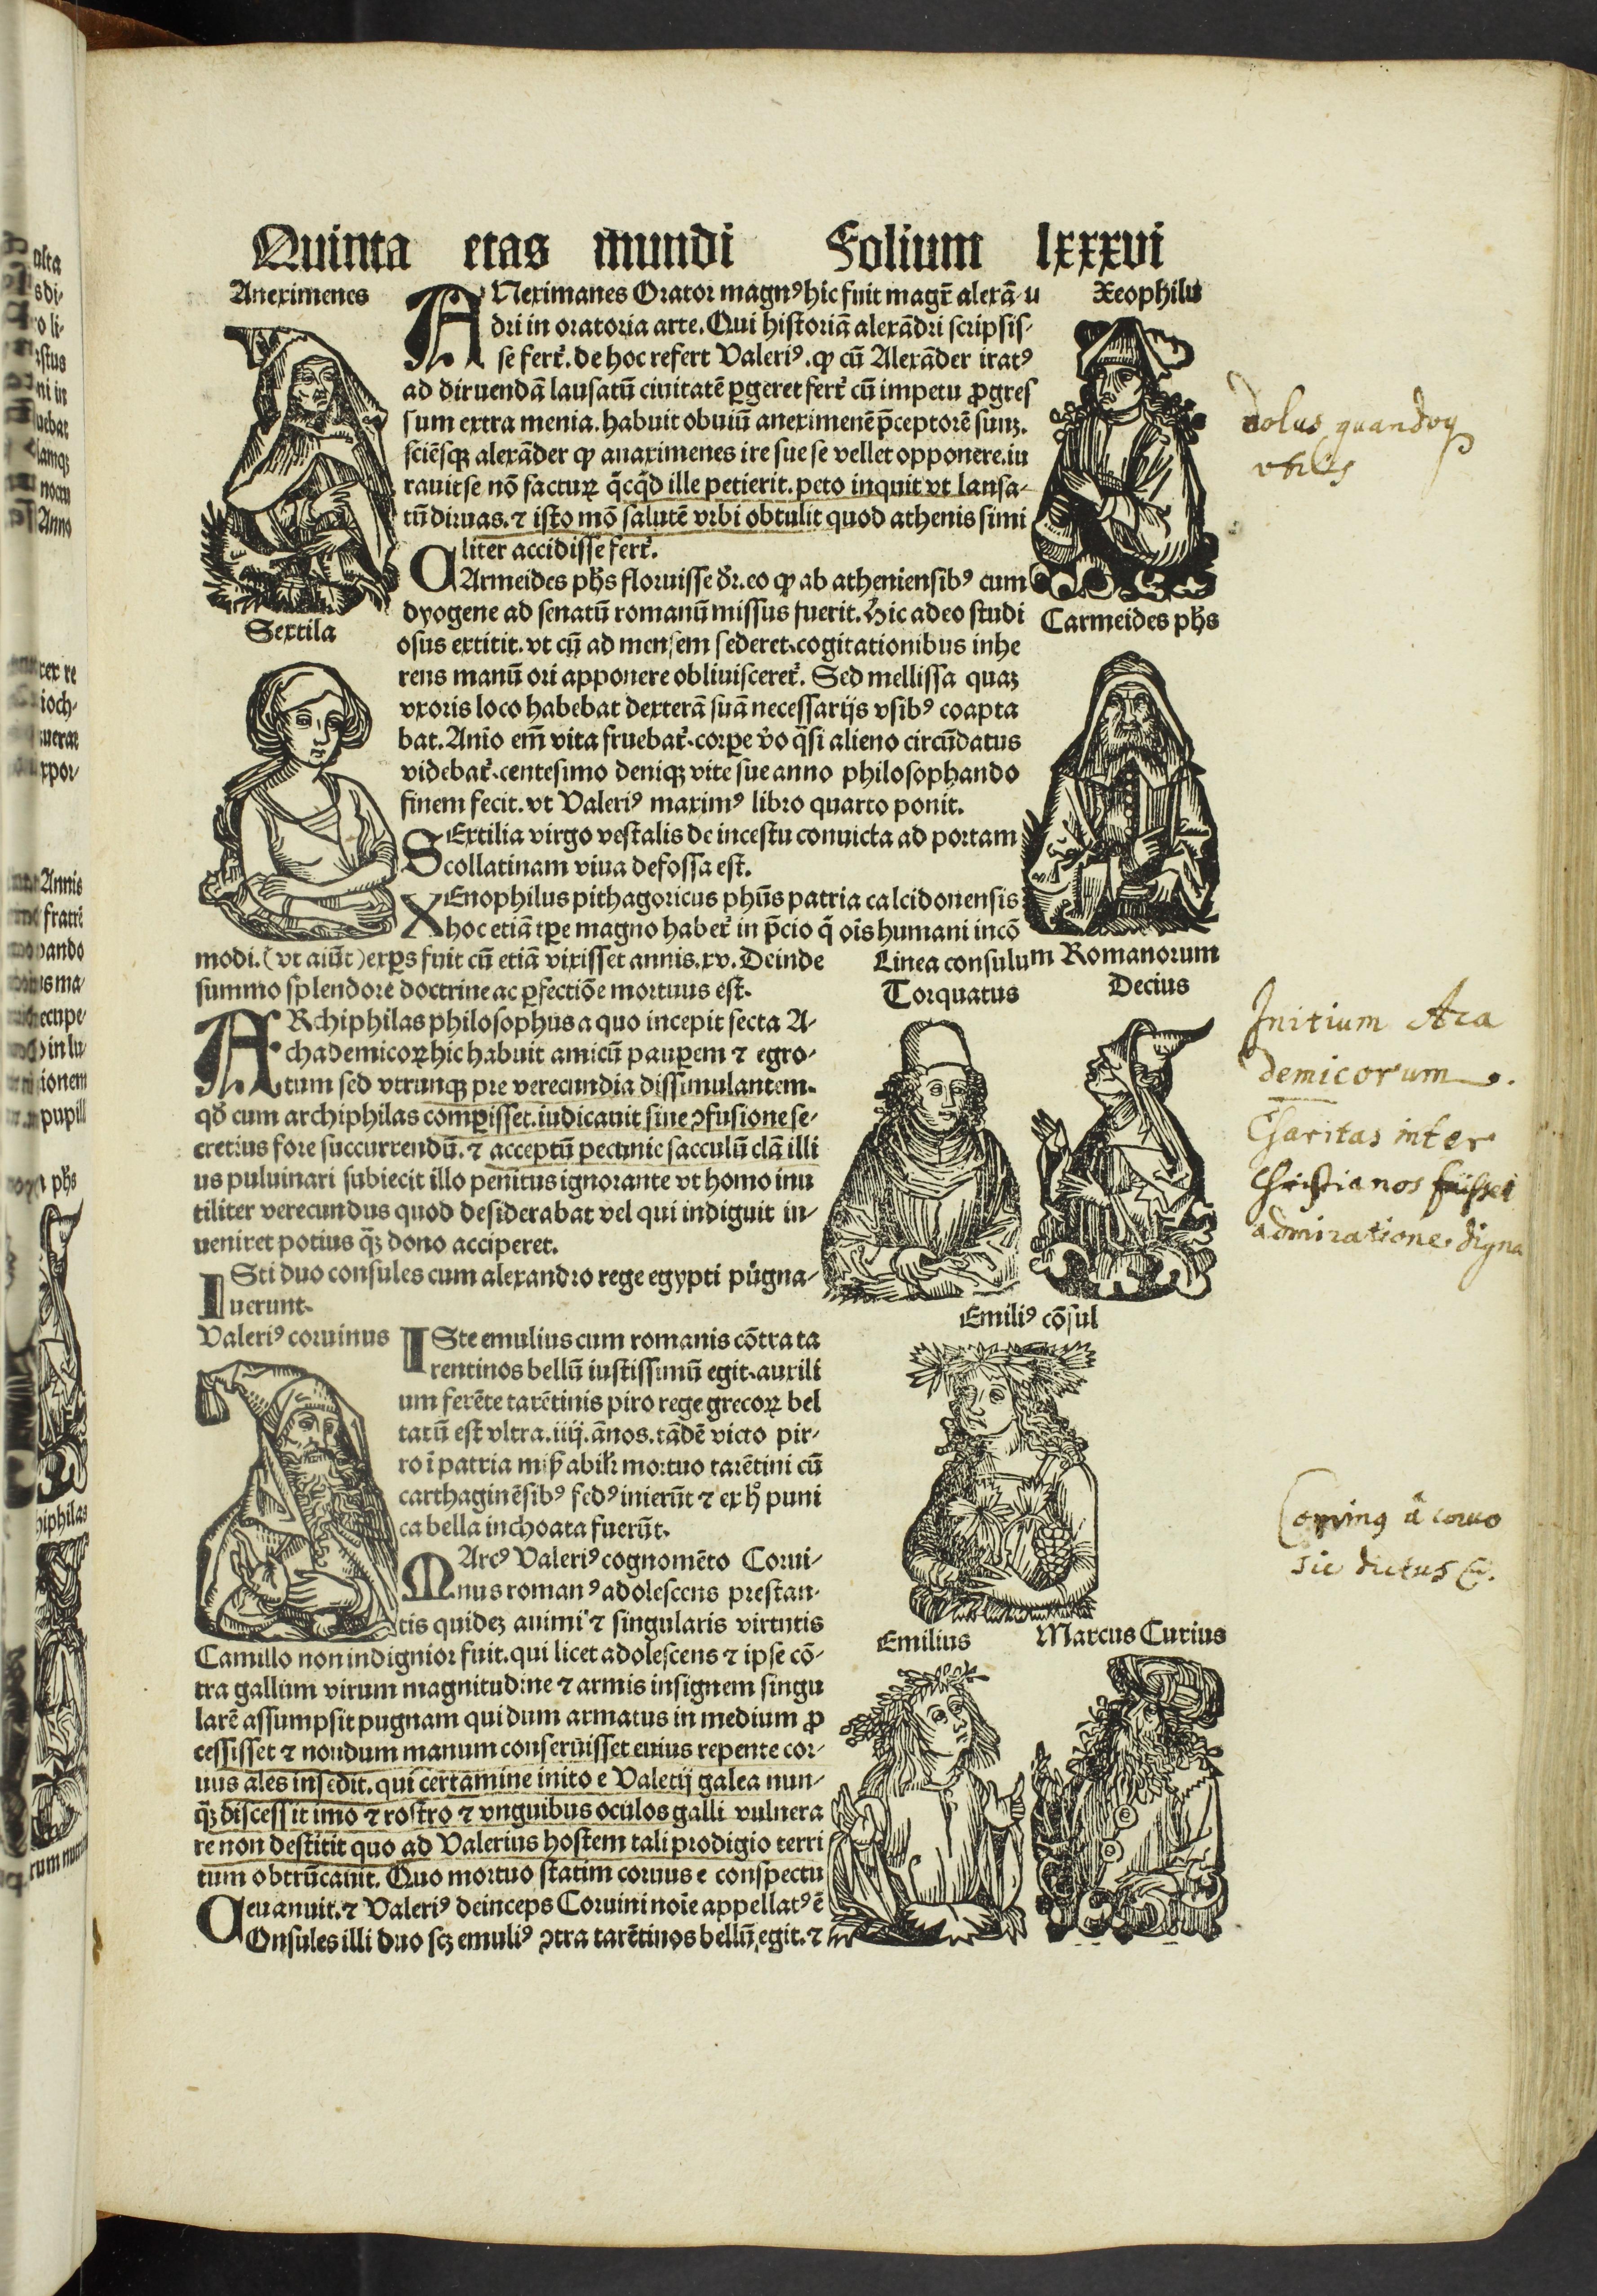 Quinta etas mundi Folium lxxxvi
Aneximenes
ANeximanes Orator magnꝰ hic fuit magr̄ alexā-u
dri in oratoria arte. Qui historiā alexādri scripsis-
se fert᷑. de hoc refert Valeriꝰ. ꝙ cū Alexāder iratꝰ
ad diruendā lausatū ciuitatē ꝑgeret fert᷑ cū impetu ꝓgres
sum extra menia. habuit obuiū aneximenē p̄ceptorē suuꝫ.
sciēsqꝫ alexāder ꝙ anaximenes ire sue se vellet opponere. iu
rauit se nō facturꝝ q̄cq̄d ille petierit. peto inquit vt lansa-
tū diruas. ⁊ isto mō salutē vrbi obtulit quod athenis simi
liter accidisse fert᷑.
CArmeides phs floruisse dr̄. eo ꝙ ab atheniensibꝰ cum
dyogene ad senatū romanū missus fuerit. Hic adeo studi
osus extitit. vt cū ad mensem sederet. cogitationibus inhe
rens manū ori apponere obliuisceret᷑. Sed mellissa quaꝫ
vxoris loco habebat dexterā suā necessarijs vsibꝰ coapta
bat. Anīo em̄ vita fruebat᷑. corꝑe v̄o q̄si alieno circūdatus
videbat᷑. centesimo deniqꝫ vite sue anno philosophando
finem fecit. vt Valeriꝰ maximꝰ libro quarto ponit.
SExtilia virgo vestalis de incestu conuicta ad portam
collatinam viua defossa est.
XEnophilus pithagoricus phūs patria calcidonensis
hoc etiā tꝑe magno habet᷑ in p̄cio q̄ oīs humani incō
modi. (vt aiūt) exꝑs fuit cū etiā vixisset annis. xv. Deinde
summo splendore doctrine ac ꝑfectiōe mortuus est.
Xeophilu
Carmeides phs
Sextila
ARchiphilas philosophus a quo incepit secta A-
chademicoꝝ hic habuit amicū pauꝑem ⁊ egro-
tum sed vtrunqꝫ pre verecundia dissimulantem.
qd̄ cum archiphilas comꝑisset. iudicauit sine ꝯfusione se-
cretius fore succurrendū. ⁊ acceptū pecunie sacculū clā illi
us puluinari subiecit illo penitus ignorante vt homo inu
tiliter verecundus quod desiderabat vel qui indiguit in-
ueniret potius q̄ꝫ dono acciperet.
ISti duo consules cum alexandro rege egypti pugna-
uerunt.
Linea consulum Romanorum
Torquatus
Decius
Valeriꝰ coruinus
ISte emulius cum romanis cōtra ta
rentinos bellū iustissimū egit. auxili
um ferēte tarētinis piro rege grecoꝝ bel
tatū est vltra. iiij. ānos. tādē victo pir-
carthaginēsibꝰ fedꝰ inierūt ⁊ ex hͦ puni
ca bella inchoata fuerūt.
MArcꝰ Valeriꝰ cognomēto Corui-
nus romanꝰ adolescens prestan-
tis quideꝫ animi ⁊ singularis virtutis
Camillo non indignior fuit. qui licet adolescens ⁊ ipse cō-
tra gallum virum magnitudine ⁊ armis insignem singu
larē assumpsit pugnam qui dum armatus in medium ꝓ
cessisset ⁊ nondum manum conseruisset euius repente cor-
uus ales insedit. qui certamine inito e Valerij galea nun-
q̄ꝫ discessit imo ⁊ rostro ⁊ vnguibus oculos galli vulnera
re non destitit quo ad Valerius hostem tali prodigio terri
tum obtrūcauit. Quo mortuo statim coruus e conspectu
euanuit. ⁊ Valeriꝰ deinceps Coruini noīe appellatꝰ ē
COnsules illi duo scꝫ emuliꝰ ꝯtra tarētinos bellū egit. ⁊
Emiliꝰ cōsul
Emilius
Marcus Curius
dolus quandoq
vtilis
Initium Aca
demicorum.
Charitas inter
Christianos fuisset
admiratione digna
Corving à coruo
sic dictus